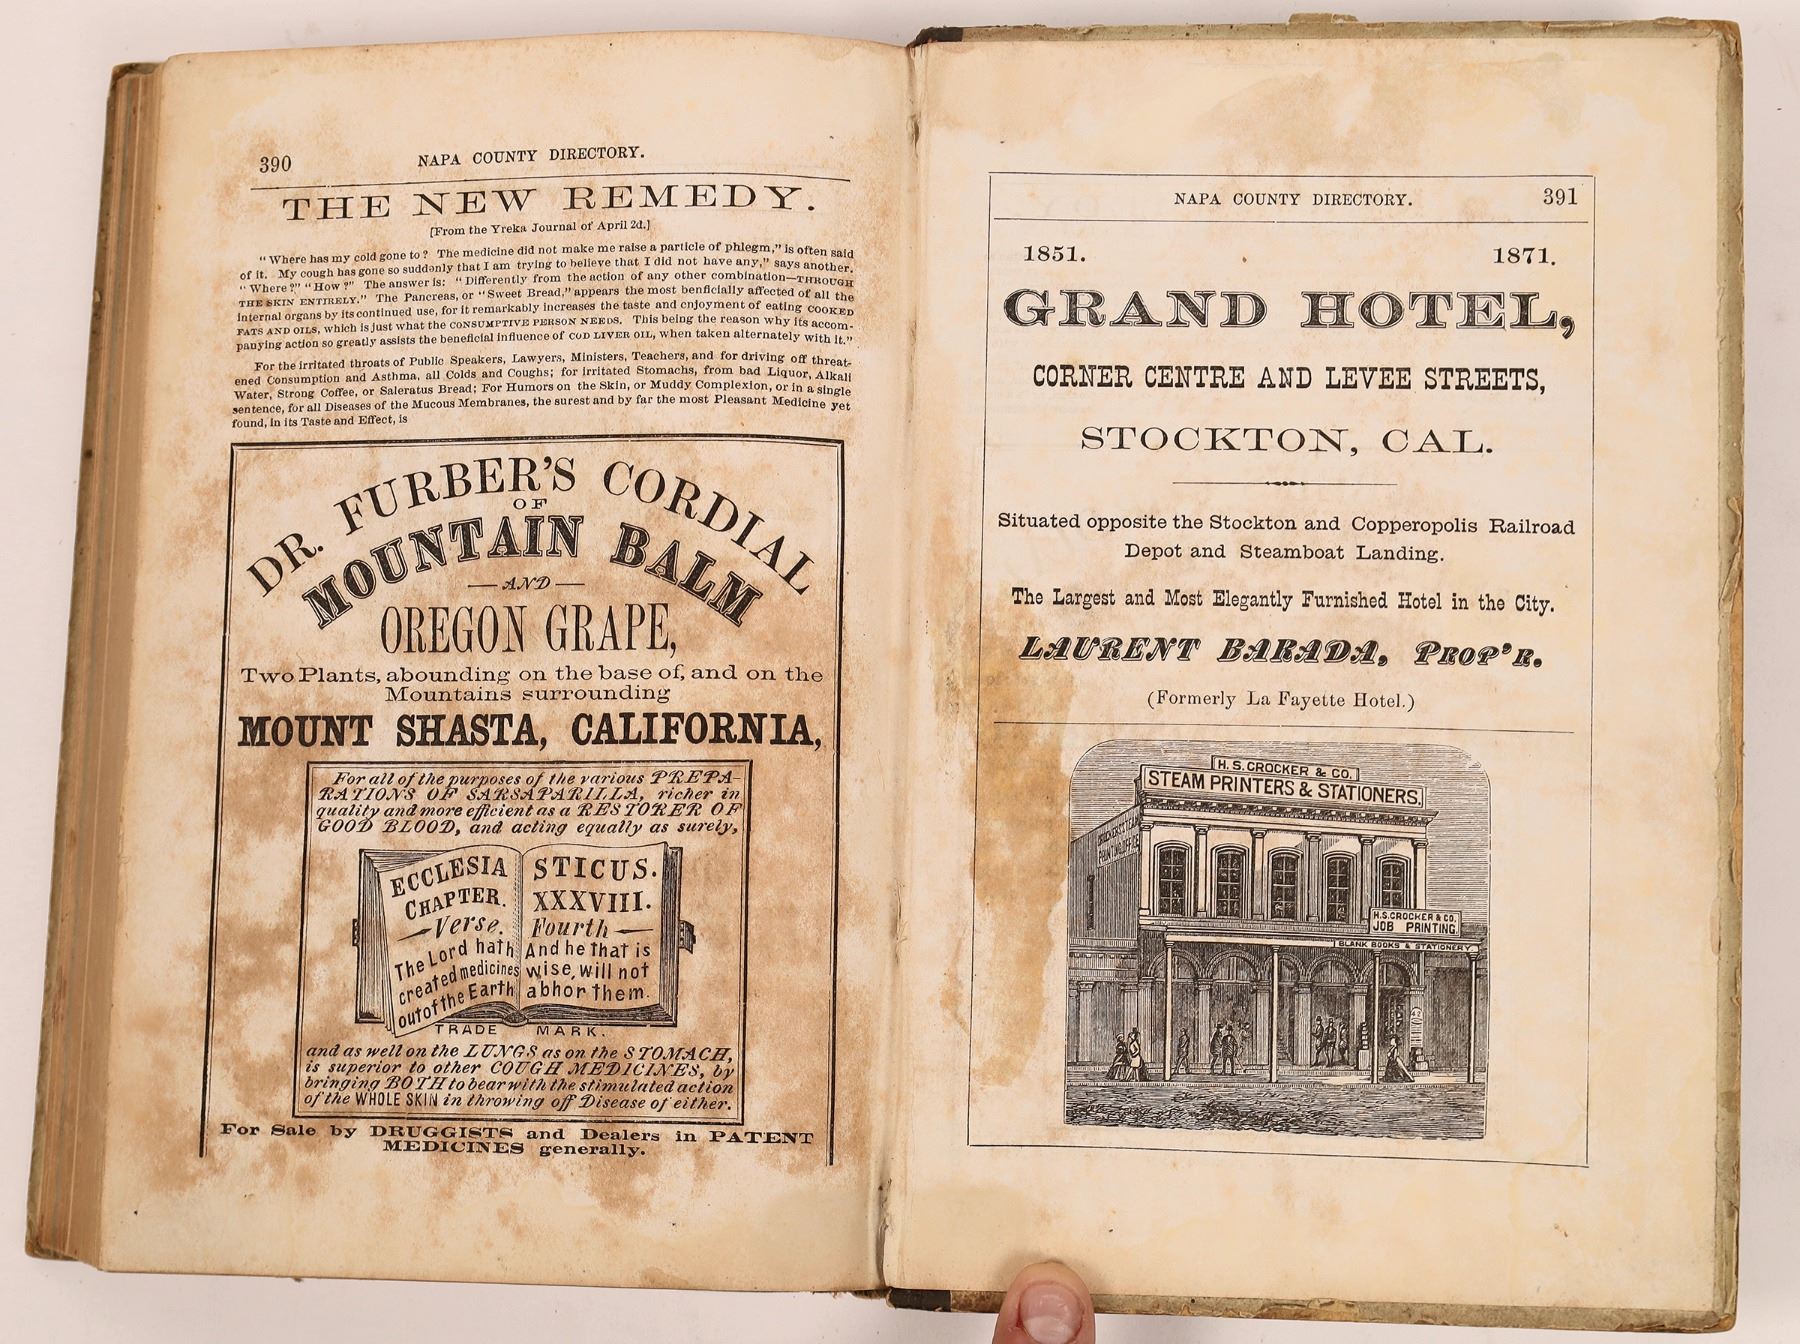 390 NAPA COUNTY DIRECTORY.
THE NEW REMEDY.
[From the Yreka Journal of April 2d.]
"Where has my cold gone to? The medicine did not make me raise a particle of phlegm," is often said
of it. My cough has gone so suddonly that I am trying to believe that I did not have any," says another.
"Where?" "How?" The answer is: "Differently from the action of any other combination—THROUGH
THE SKIN ENTIRELY." The Pancreas, or "Sweet Bread," appears the most benficially affected of all the
internal organs by its continued use, for it remarkably increases the taste and enjoyment of eating COOKED
FATS AND OILS, which is just what the CONSUMPTIVE PERSON NEEDS. This being the reason why its accom-
panying action so greatly assists the beneficial influence of COD LIVER OIL, when taken alternately with it."
For the irritated throats of Public Speakers, Lawyers, Ministers, Teachers, and for driving off threat-
ened Consumption and Asthma, all Colds and Coughs; for irritated Stomachs, from bad Liquor, Alkali
Water, Strong Coffee, or Saleratus Bread; For Humors on the Skin, or Muddy Complexion, or in a single
sentence, for all Diseases of the Mucous Membranes, the surest and by far the most Pleasant Medicine yet
found, in its Taste and Effect, is
DR. FURBER'S CORDIAL
OF
MOUNTAIN BALM
—AND—
OREGON GRAPE,
Two Plants, abounding on the base of, and on the
Mountains surrounding
MOUNT SHASTA, CALIFORNIA,
For all of the purposes of the various PREPA-
RATIONS OF SARSAPARILLA, richer in
quality and more efficient as a RESTORER OF
GOOD BLOOD, and acting equally as surely,
ECCLESIA STICUS.
CHAPTER. XXXVIII.
Verse. Fourth
The Lord hath And he that is
created medicines wise, will not
out of the Earth abhor them.
TRADE MARK.
and as well on the LUNGS as on the STOMACH,
is superior to other COUGH MEDICINES, by
bringing BOTH to bear with the stimulated action
of the WHOLE SKIN in throwing off Disease of either.
For Sale by DRUGGISTS and Dealers in PATENT
MEDICINES generally.
NAPA COUNTY DIRECTORY. 391
1851. 1871.
GRAND HOTEL,
CORNER CENTRE AND LEVEE STREETS,
STOCKTON, CAL.
Situated opposite the Stockton and Copperopolis Railroad
Depot and Steamboat Landing.
The Largest and Most Elegantly Furnished Hotel in the City.
LAURENT BARADA, PROP'R.
(Formerly La Fayette Hotel.)
H. S. CROCKER & CO.
STEAM PRINTERS & STATIONERS.
H.S. CROCKER & CO.
JOB PRINTING.
BLANK BOOKS & STATIONERY